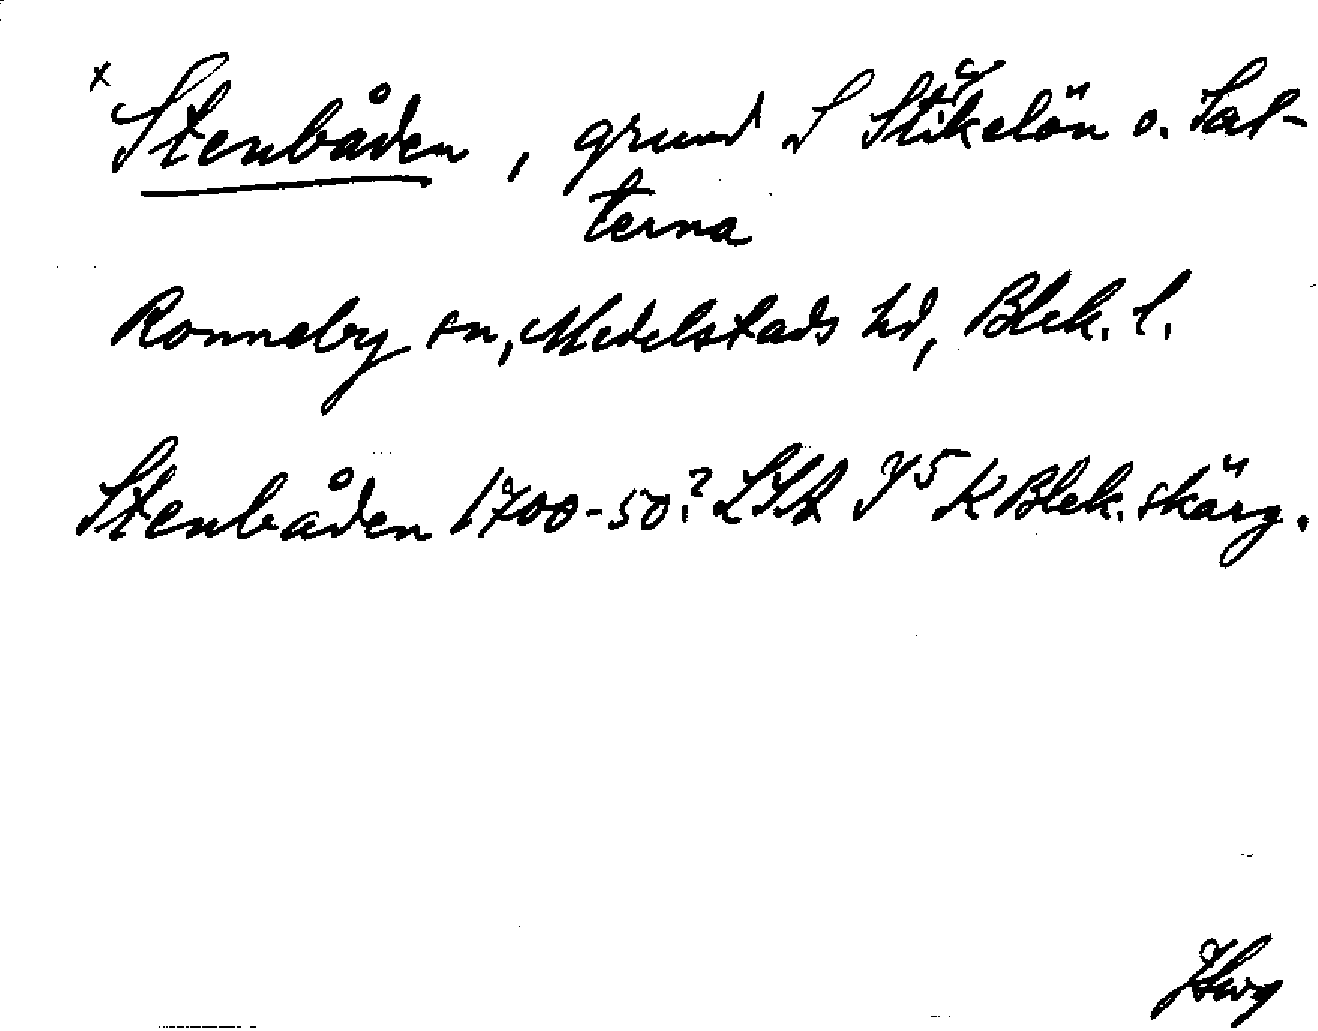 x Stenbåden, grund S Stickelön o. Sal-
terna
Ronneby sn, Medelstads hd, Blek. l.
Stenbåden 1700-50? LSA Y5 K Blek. skärg.